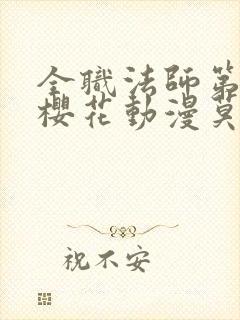 全職法師第
櫻花動漫莫
祝不安